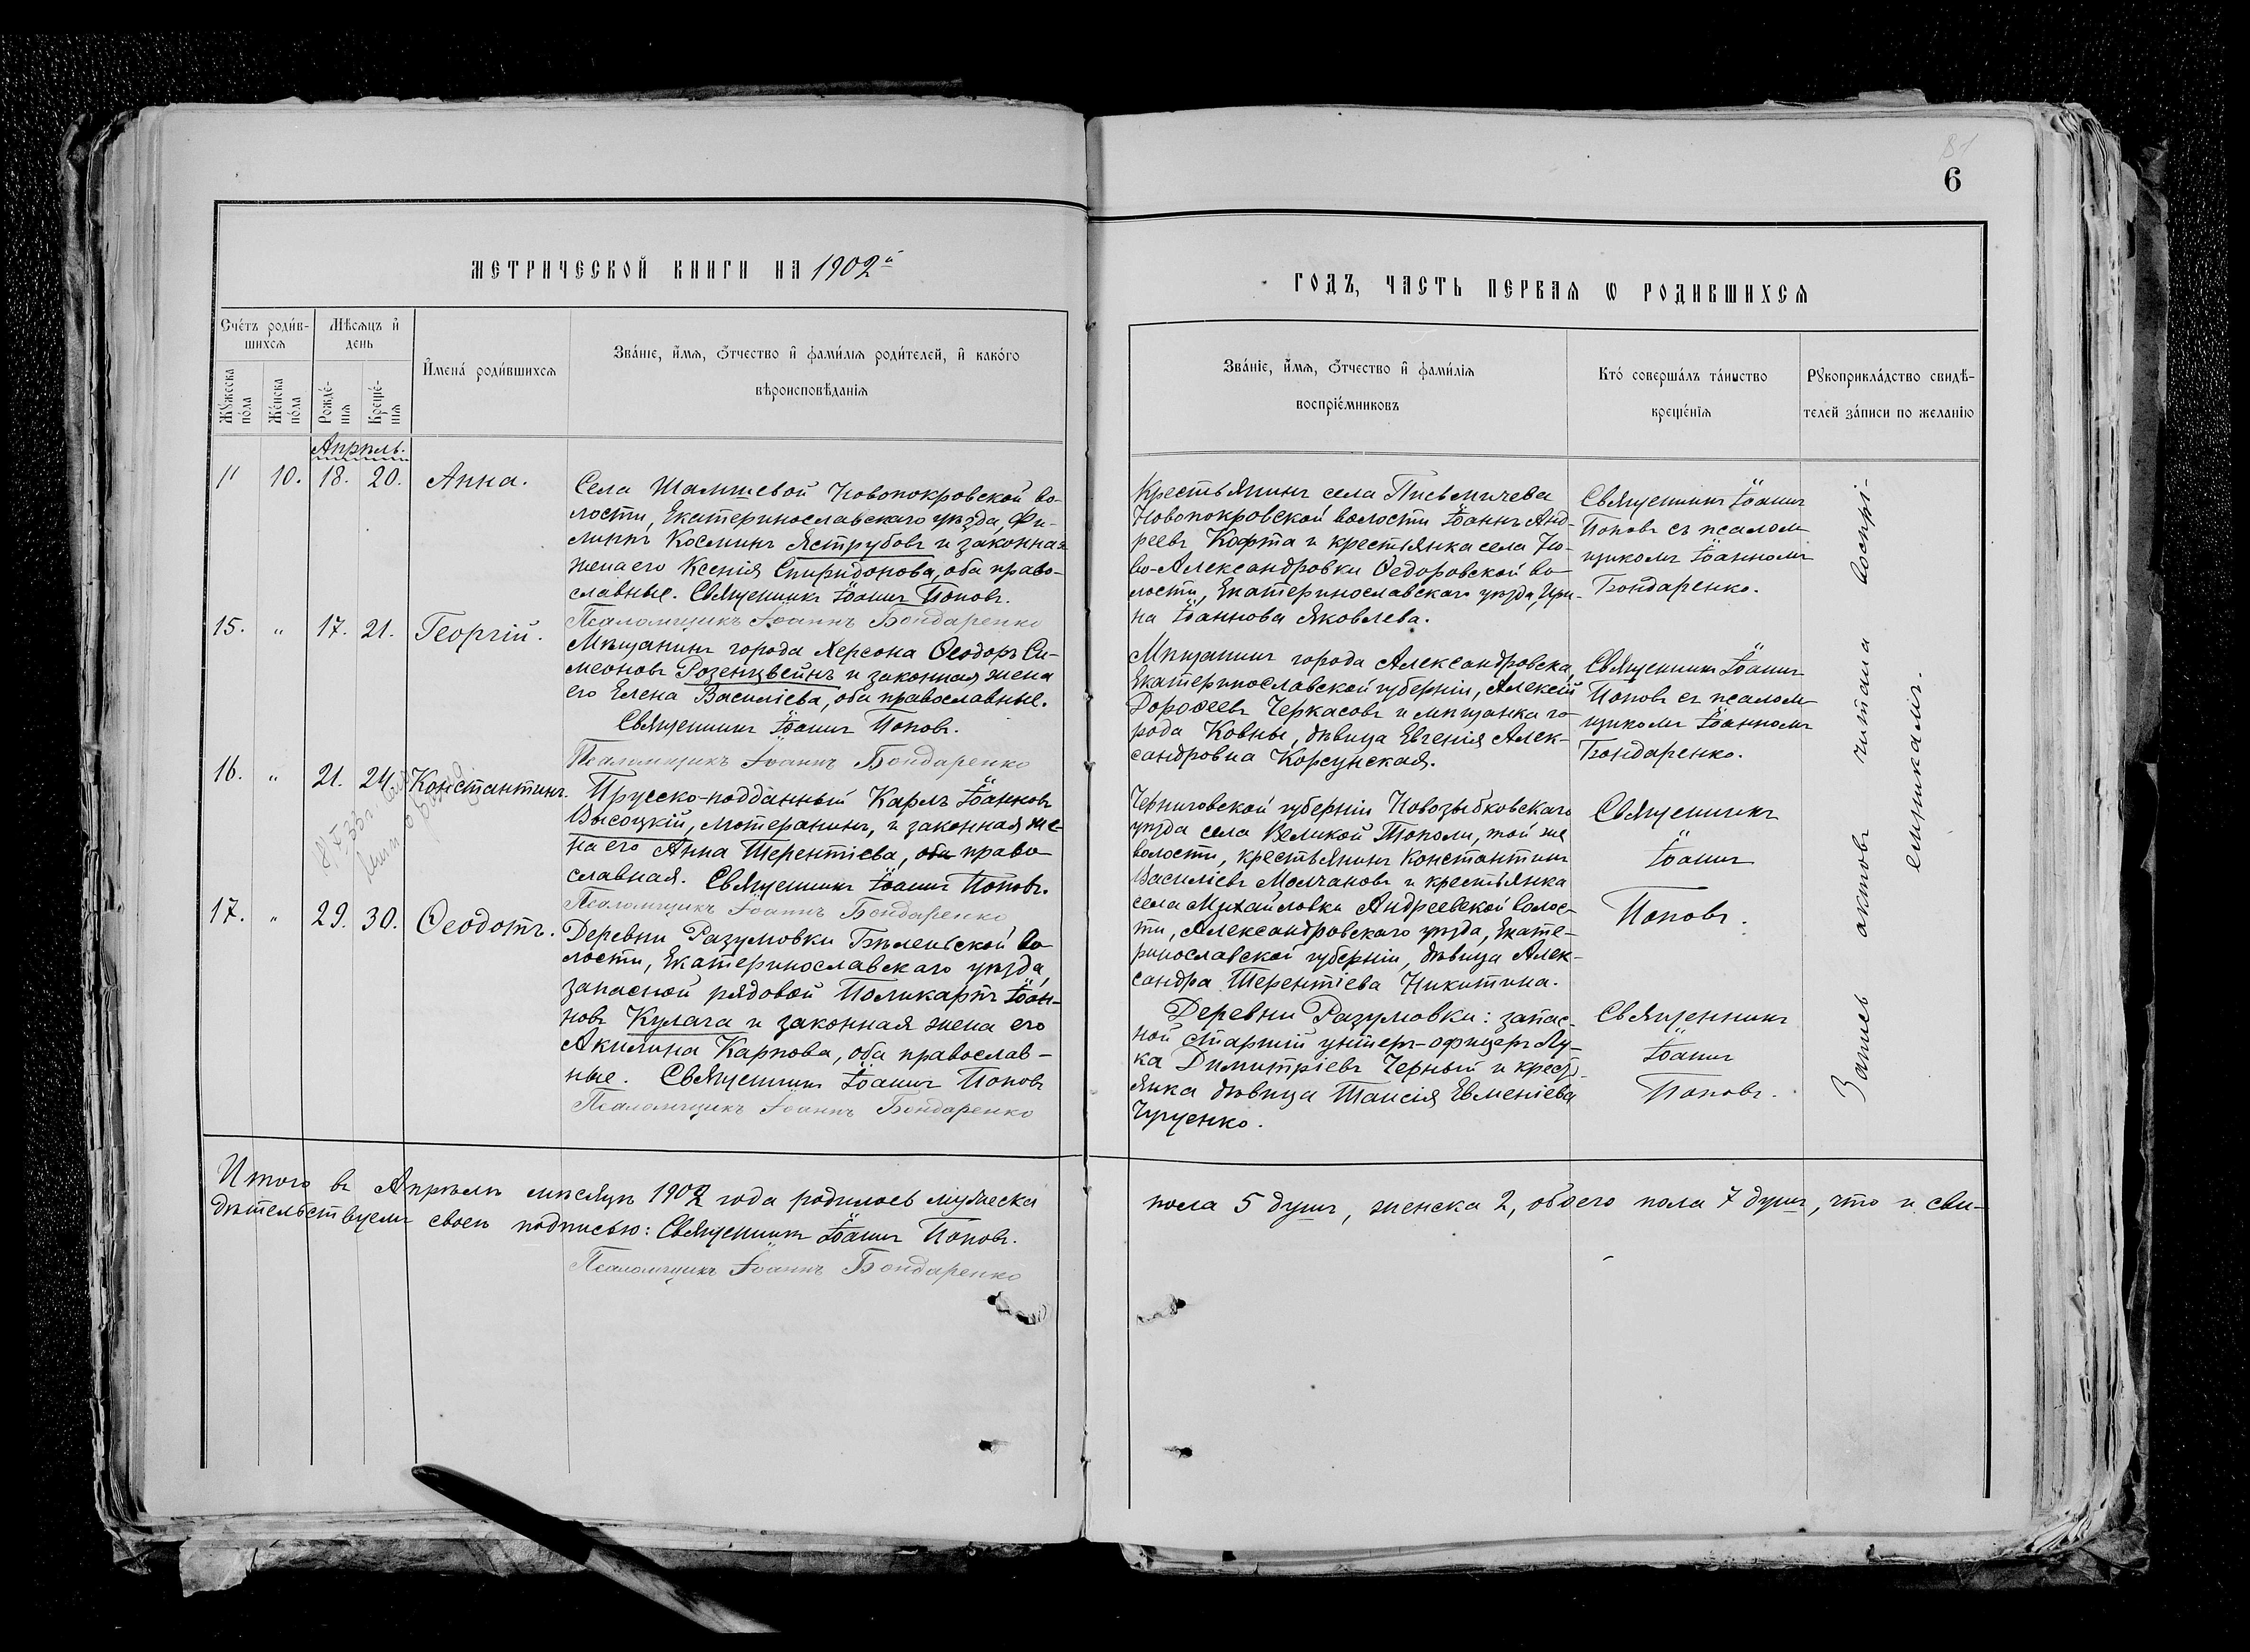 6
МЕТРИЧЕСКОЙ КНИГИ НА 1902й
ГОДЪ, ЧАСТЬ ПЕРВАѦ Ѡ РОДИВШИХСѦ
Счетъ родив-
шихсѧ
Мѣсѧцъ и
день
Мужеска
пола
Женска
пола
Рожде-
нія
Креще-
нія
Имена родившихсѧ
Званіе, имѧ, отчество и фамиліѧ родителей, и какого
вѣроисповѣданіѧ
Званіе, имѧ, отчество и фамиліѧ
воспріемниковъ
Кто совершалъ таинство
крещеніѧ
Рукоприкладство свидѣ-
телей записи по желанію
Апрѣль.
" 10. 18. 20. Анна.
Села Шалишевой Новопокровской во-
лости, Екатеринославскаго уѣзда, Фи-
липпъ Косминъ Яструбовъ и законная
жена его Ксенія Спиридонова, оба право-
славные. Священникъ Іоаннъ Поповъ.
Псаломщикъ Іоаннъ Бондаренко
Крестьянинъ села Письмичева
Новопокровской волости Іоаннъ Анд-
реевъ Кофта и крестьянка села Но-
во-Александровки Ѳедоровской во-
лости, Екатеринославскаго уѣзда, Ири-
на Іоаннова Яковлева.
Священникъ Іоаннъ
Поповъ съ псалом-
щикомъ Іоанномъ
Бондаренко.
15. " 17. 21. Георгій.
Мѣщанинъ города Херсона Ѳеодоръ Си-
меоновъ Розенцвейнъ и законная жена
его Елена Василіева, оба православные.
Священникъ Іоаннъ Поповъ.
Псаломщикъ Іоаннъ Бондаренко
Мѣщанинъ города Александровска,
Екатеринославской губерніи, Алексій
Дороѳеевъ Черкасовъ и мѣщанка го-
рода Ковны, дѣвица Евгенія Алек-
сандровна Корсунская.
Священникъ Іоаннъ
Поповъ съ псалом-
щикомъ Іоанномъ
Бондаренко.
16. " 21. 24. Константинъ.
Прусско-подданный Карлъ Іоанновъ
Высоцкій, лютеранинъ, и законная же-
на его Анна Терентіева, оба право-
славная. Священникъ Іоаннъ Поповъ.
Псаломщикъ Іоаннъ Бондаренко
Черниговской губерніи Новозыбковскаго
уѣзда села Великой Тополи, той же
волости, крестьянинъ Константинъ
Василіевъ Молчановъ и крестьянка
села Михайловки Андреевской волос-
ти, Александровскаго уѣзда, Екате-
ринославской губерніи, дѣвица Алек-
сандра Терентіева Никитина.
Священникъ
Іоаннъ
Поповъ.
17. " 29. 30. Ѳеодотъ.
Деревни Разумовки Бѣленьской во-
лости, Екатеринославскаго уѣзда,
запасной рядовой Поликарпъ Іоан-
новъ Кулага и законная жена его
Акилина Карпова, оба православ-
ные. Священникъ Іоаннъ Поповъ
Псаломщикъ Іоаннъ Бондаренко
Деревни Разумовки: запас-
ной старшій унтеръ-офицеръ Лу-
ка Димитріевъ Черный и кресть-
янка дѣвица Таисія Евменіева
Чученко.
Священникъ
Іоаннъ
Поповъ.
Запись актовъ читана воспрі-
емникамъ.
Итого въ Апрѣлѣ мѣсяцѣ 1902 года родилось мужеска пола 5 душъ, женска 2, обоего пола 7 душъ, что и сви-
дѣтельствуемъ своею подписью: Священникъ Іоаннъ Поповъ.
Псаломщикъ Іоаннъ Бондаренко